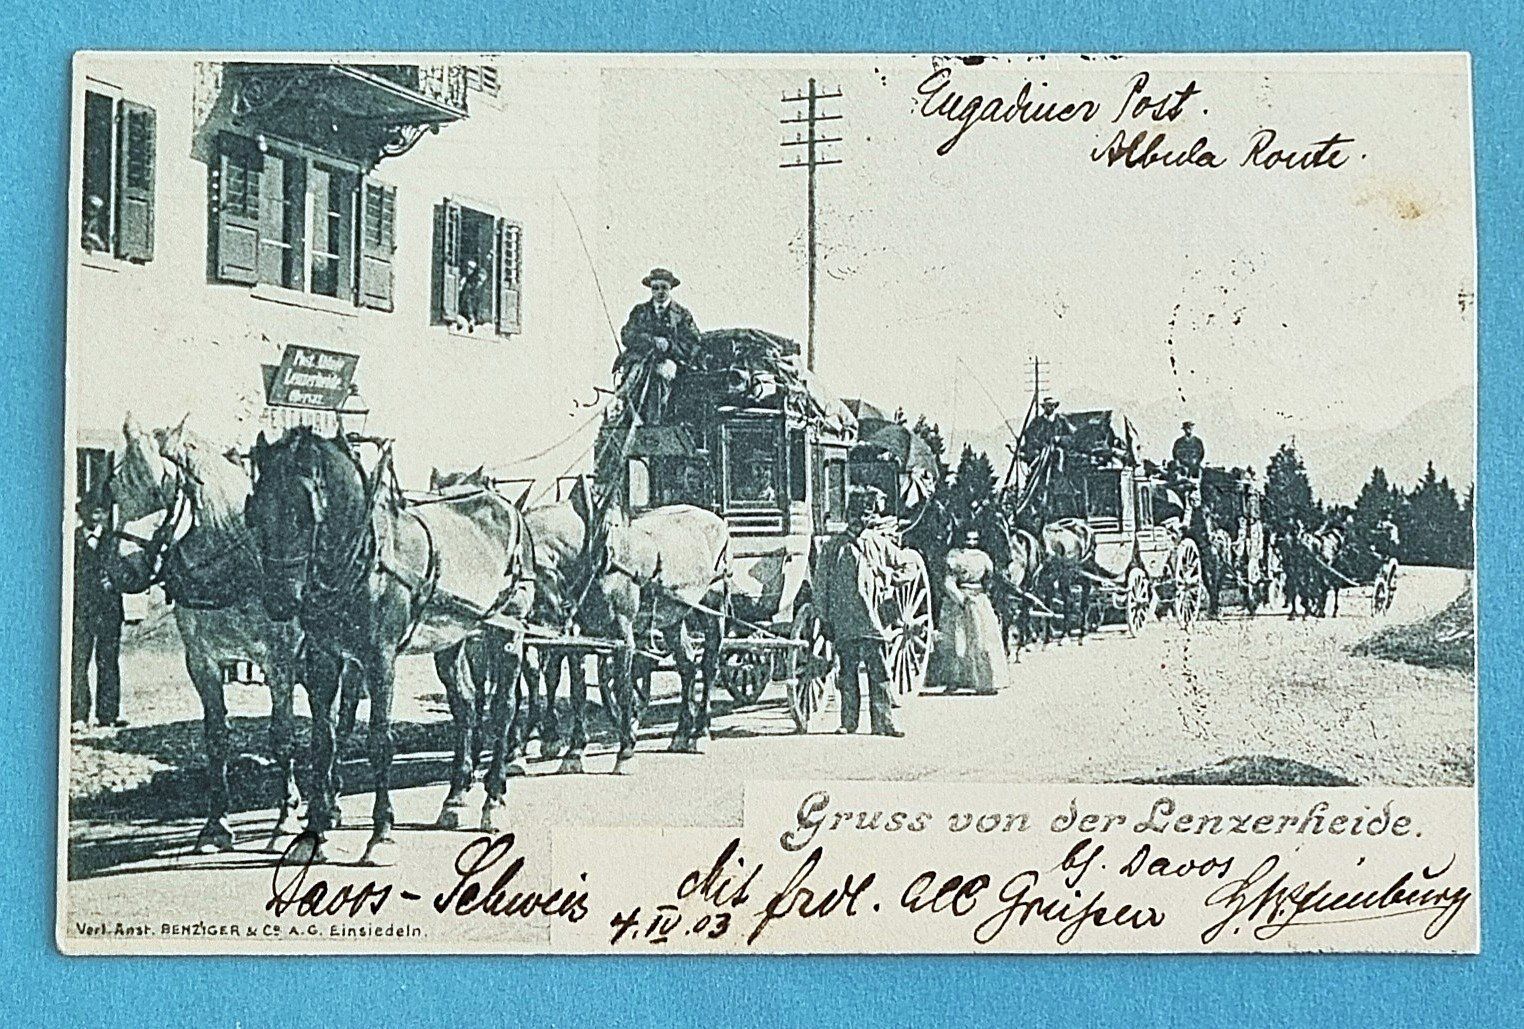 Engadiner Post.
Albula Route.
Post Ablage
Lenzerheide
Gruss von der Lenzerheide.
bh. Davos
Davos - Schweiz
Mit frdl. Grüßen
4. IV. 03
Verl. Anst. BENZIGER & Co. A.G. Einsiedeln.